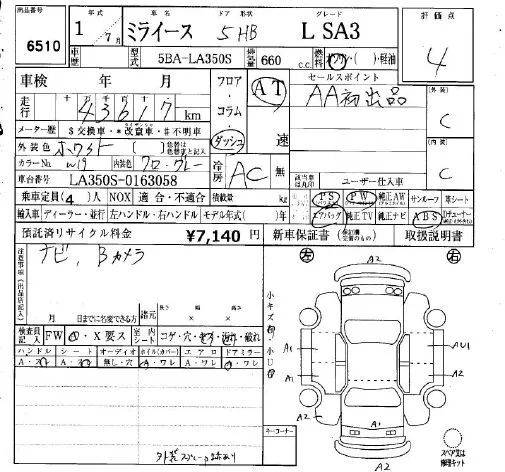 商品番号 6510
年式 1年 7月
車名 ミライース
ドア 形状 5HB
グレード L SA3
評価点 4
車歴
型式 5BA-LA350S
排気量 660 c.c.
燃料 ガソリン・( )・軽油
車検 年 月
走行 43617 km
十万 万 千 百 十
フロア・コラム・ダッシュ
AT 速
セールスポイント
AA初出品
外装 C
内装 C
メーター歴 $交換車・*改竄車・#不明車
外装色 ホワイト
カラーNo. W19 内装色 クロ・グレー
冷房 AC 無
車台番号 LA350S-0163058
ユーザー仕入車
乗車定員(4)人 NOX 適合・不適合 積載量 kg
PS PW 純正AW サンルーフ 本シート
輸入車 ディーラー・並行 左ハンドル・右ハンドル モデル年式( )年
エアバック 純正TV 純正ナビ ABS
預託済リサイクル料金 ¥7,140 円
新車保証書 取扱説明書
注意事項(出品店記入)
ナビ、Bカメラ
月 日までに名変できる方
諸元 長さ 幅 高さ × ×
検査員記入 FW ・X要ス 室内 シート コゲ・穴・キズ・汚れ・破れ
ハンドル シート オーディオ ホイル(カバー) エアロ ドアミラー
A・スレ A・スレ 無し・穴 A・ワレ A・ワレ A・ワレ
左 右
小キズ 小
A2
A1 AU1
A1 A2
A2 A1
A2
キーコーナー
スペア又は修理キット